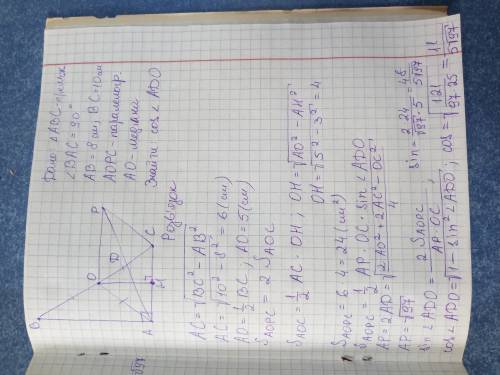 Дано △ABC-прямок
∠BAC = 90°
AB = 8 см, BC = 10 см
AOPC - паралелогр.
AO - медіана
Знайти cos∠ADO
B
O
P
D
A
H
C
Розв'язок
AC = √BC² - AB²
AC = √10² - 8² = 6 (см)
AO = 1/2 BC, AO = 5 (см)
S_AOPC = 2 S_AOC
S_AOC = 1/2 AC · OH; OH = √AO² - AH²
OH = √5² - 3² = 4
S_AOPC = 6·4 = 24 (см²)
S_AOPC = 1/2 AP · OC · sin∠ADO
AP = 2AD = √(2AO² + 2AC² - OC²)/4
AP = √97
sin∠ADO = 2S_AOPC/AP·OC; sin = 2·24/√97·5 = 48/5√97
cos∠ADO = √1 - sin²∠ADO; cos = √121/97·25 = 11/5√97
√97